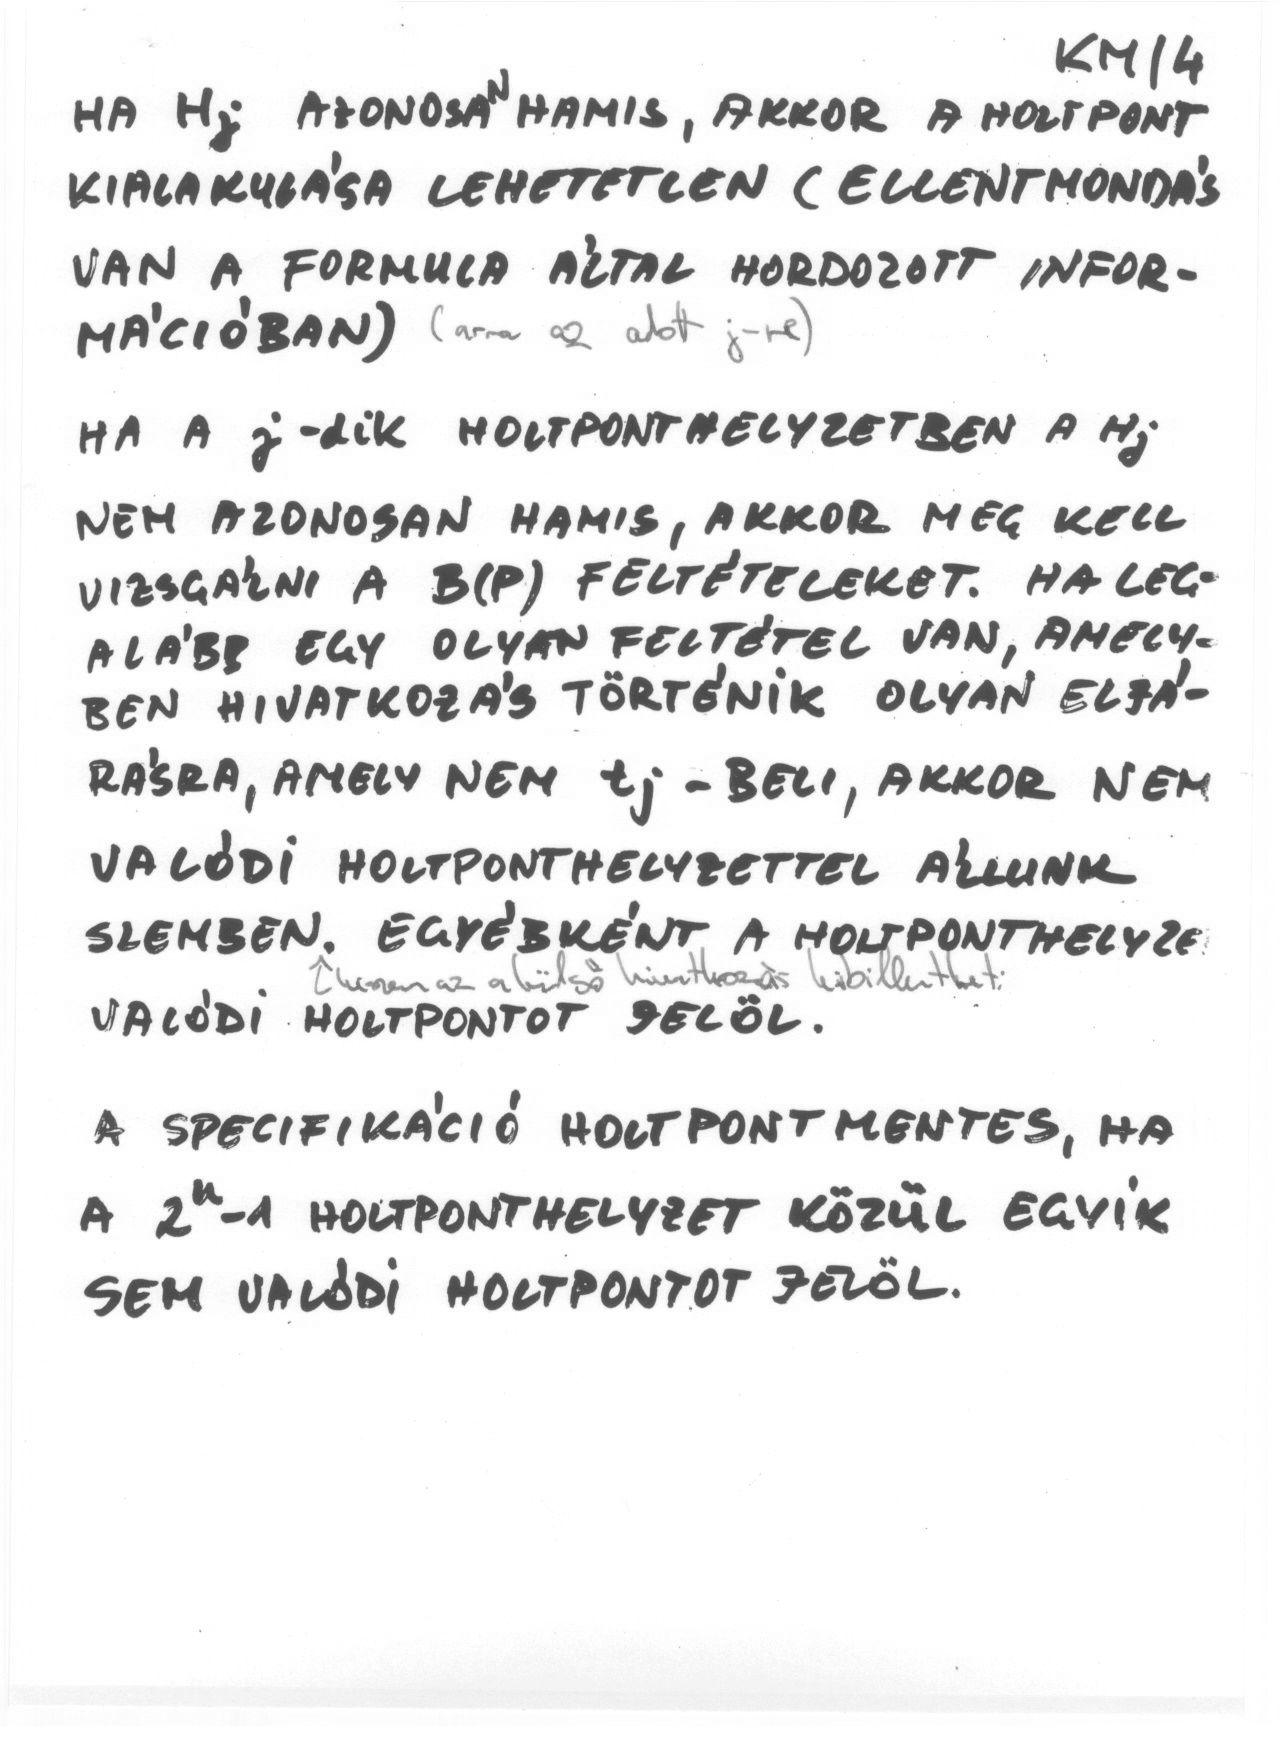 KM/4
HA Hj AZONOSAN HAMIS, AKKOR A HOLTPONT
KIALAKULÁSA LEHETETLEN (ELLENTMONDÁS
VAN A FORMULA ÁLTAL HORDOZOTT INFOR-
MÁCIÓBAN) (arra az adott j-re)
HA A j-dik HOLTPONTHELYZETBEN A Hj
NEM AZONOSAN HAMIS, AKKOR MEG KELL
VIZSGÁLNI A B(P) FELTÉTELEKET. HA LEG-
ALÁBB EGY OLYAN FELTÉTEL VAN, AMELY-
BEN HIVATKOZÁS TÖRTÉNIK OLYAN ELJÁ-
RÁSRA, AMELY NEM tj-BELI, AKKOR NEM
VALÓDI HOLTPONTHELYZETTEL ÁLLUNK
SZEMBEN. EGYÉBKÉNT A HOLTPONTHELYZE
↑ az a külső hivatkozás kibillentheti
VALÓDI HOLTPONTOT JELÖL.
A SPECIFIKÁCIÓ HOLTPONTMENTES, HA
A 2ⁿ-1 HOLTPONTHELYZET KÖZÜL EGYIK
SEM VALÓDI HOLTPONTOT JELÖL.